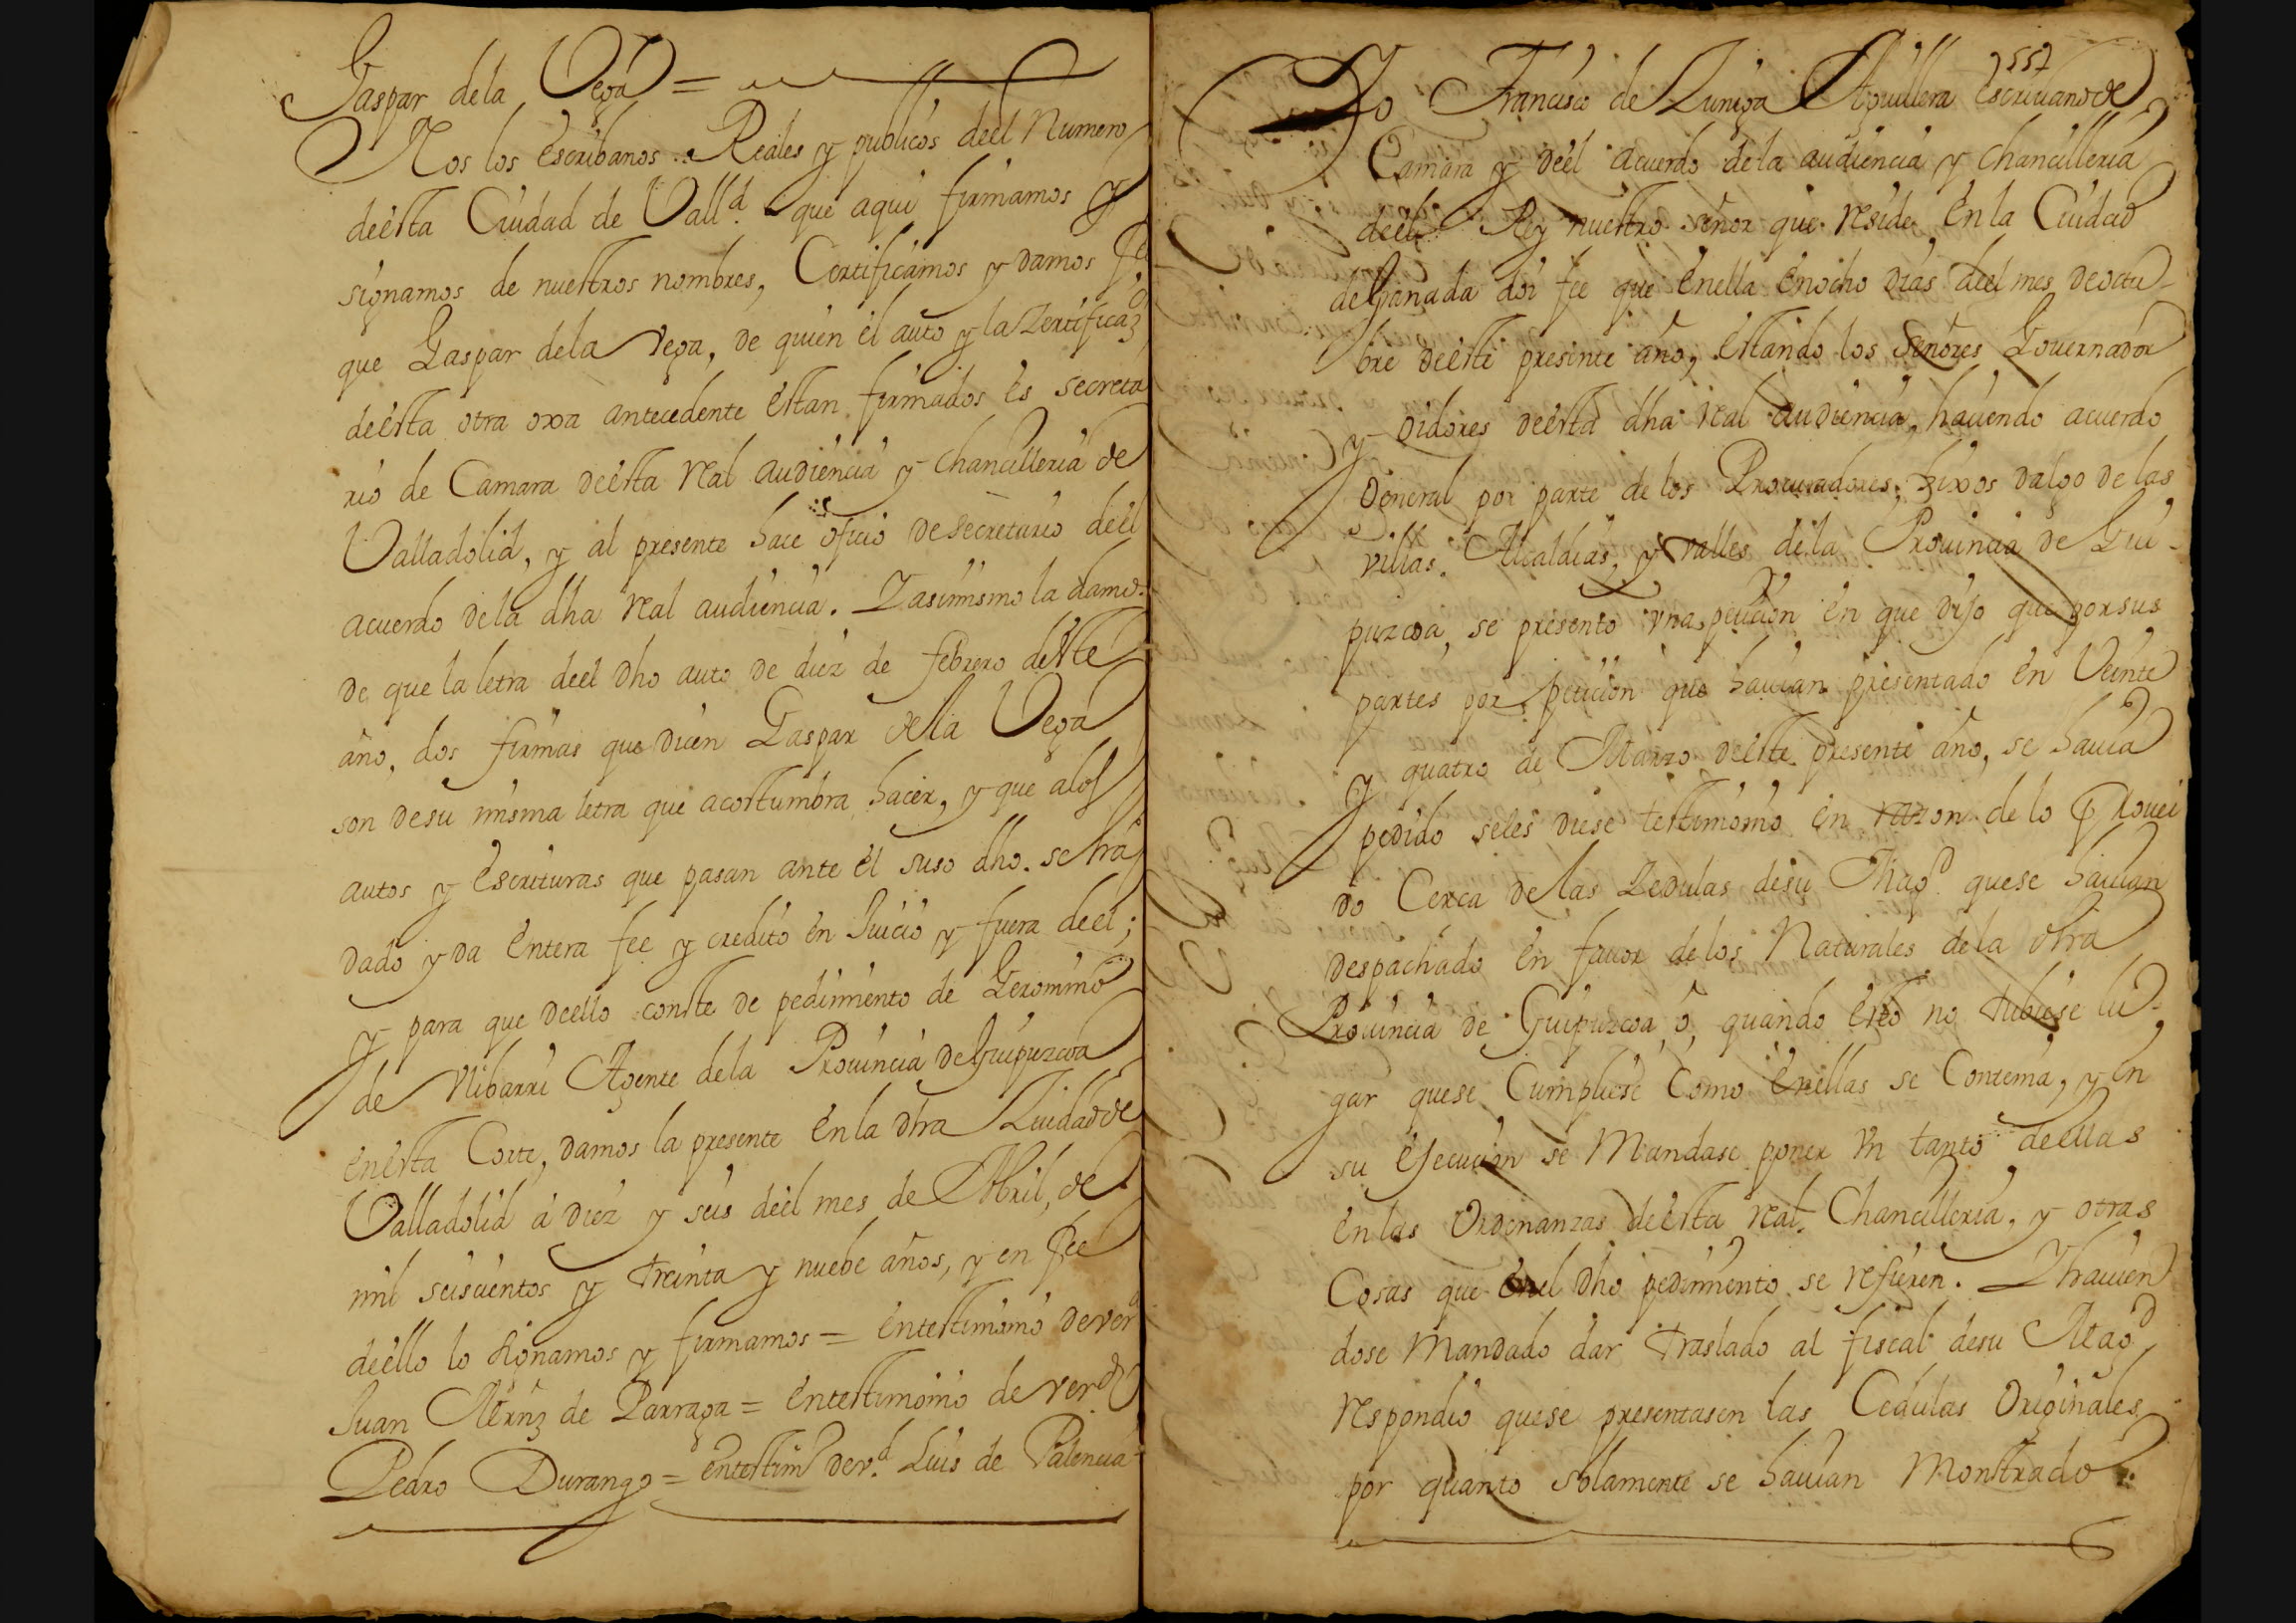 Gaspar dela Vega =
Nos los escribanos Reales y publicos deel Numero
deesta Ciudad de Vall.d que aqui firmamos y
signamos de nuestros nombres, Certificamos y damos fe
que Gaspar dela Vega, de quien el auto y la Zertificaz.on
deesta otra oxa antecedente estan firmados es secreta
rio de Camara deesta Real audiencia y chancilleria de
Valladolid, y al presente hace oficio de secretario deel
acuerdo dela dha real audiencia. Y asimismo la damos
de que la letra deel dho auto de diez de febrero deste
año, dos firmas que dicen Gaspar dela Vega
son desu misma letra que acostumbra hacer, y que alos
autos y escrituras que pasan ante el suso dho. se ha
dado y da entera fee y credito en Juicio y fuera deel;
y para que deello conste de pedimiento de Geronimo
de Nibarri Agente dela Prouincia de Guipuzcoa
enesta Corte, damos la presente en la dha Ziudad de
Valladolid á diez y seis deel mes de Abril, de
mil seiscientos y treinta y nuebe años, y en fee
deello lo signamos y firmamos = entestimonio de ver.d
Juan Mrñz de Parraga = entestimonio de ver.d
Pedro Durango = entestim.o de v.d Luis de Palencia
557
Yo Francisco de Zuniga Aguillera escriuano de
Camara y deel acuerdo dela audiencia y chancilleria
deel Rey nuestro señor que reside en la Ciudad
de Granada doi fee que enella enocho dias deel mes de octu-
bre deeste presente año, estando los Señores Gouernador
y oidores deesta dha real audiencia, hauiendo acuerdo
General por parte de los Procuradores hixos dalgo de las
villas, Alcaldias, y valles dela Prouincia de Gui-
puzcoa, se presento vna peticion en que dijo que por sus
partes por peticion que hauian presentado en Veinte
y quatro de Marzo deeste presente año, se hauia
pedido seles diese testimonio en razon de lo Prouei
do Cerca de las Zedulas desu Mag.d quese hauian
despachado en fauor delos Naturales dela dha
Prouincia de Guipuzcoa, o, quando esto no tubiese lu-
gar quese Cumpliese como enellas se Contenia, y en
su ejecucion se Mandase poner vn tanto deellas
en las ordenanzas deesta real Chancilleria, y otras
Cosas que enel dho pedimiento se refieren. Y hauien
dose Mandado dar traslado al fiscal desu Mag.d
respondio quese presentasen las Cedulas originales
por quanto solamente se hauian Monstrado